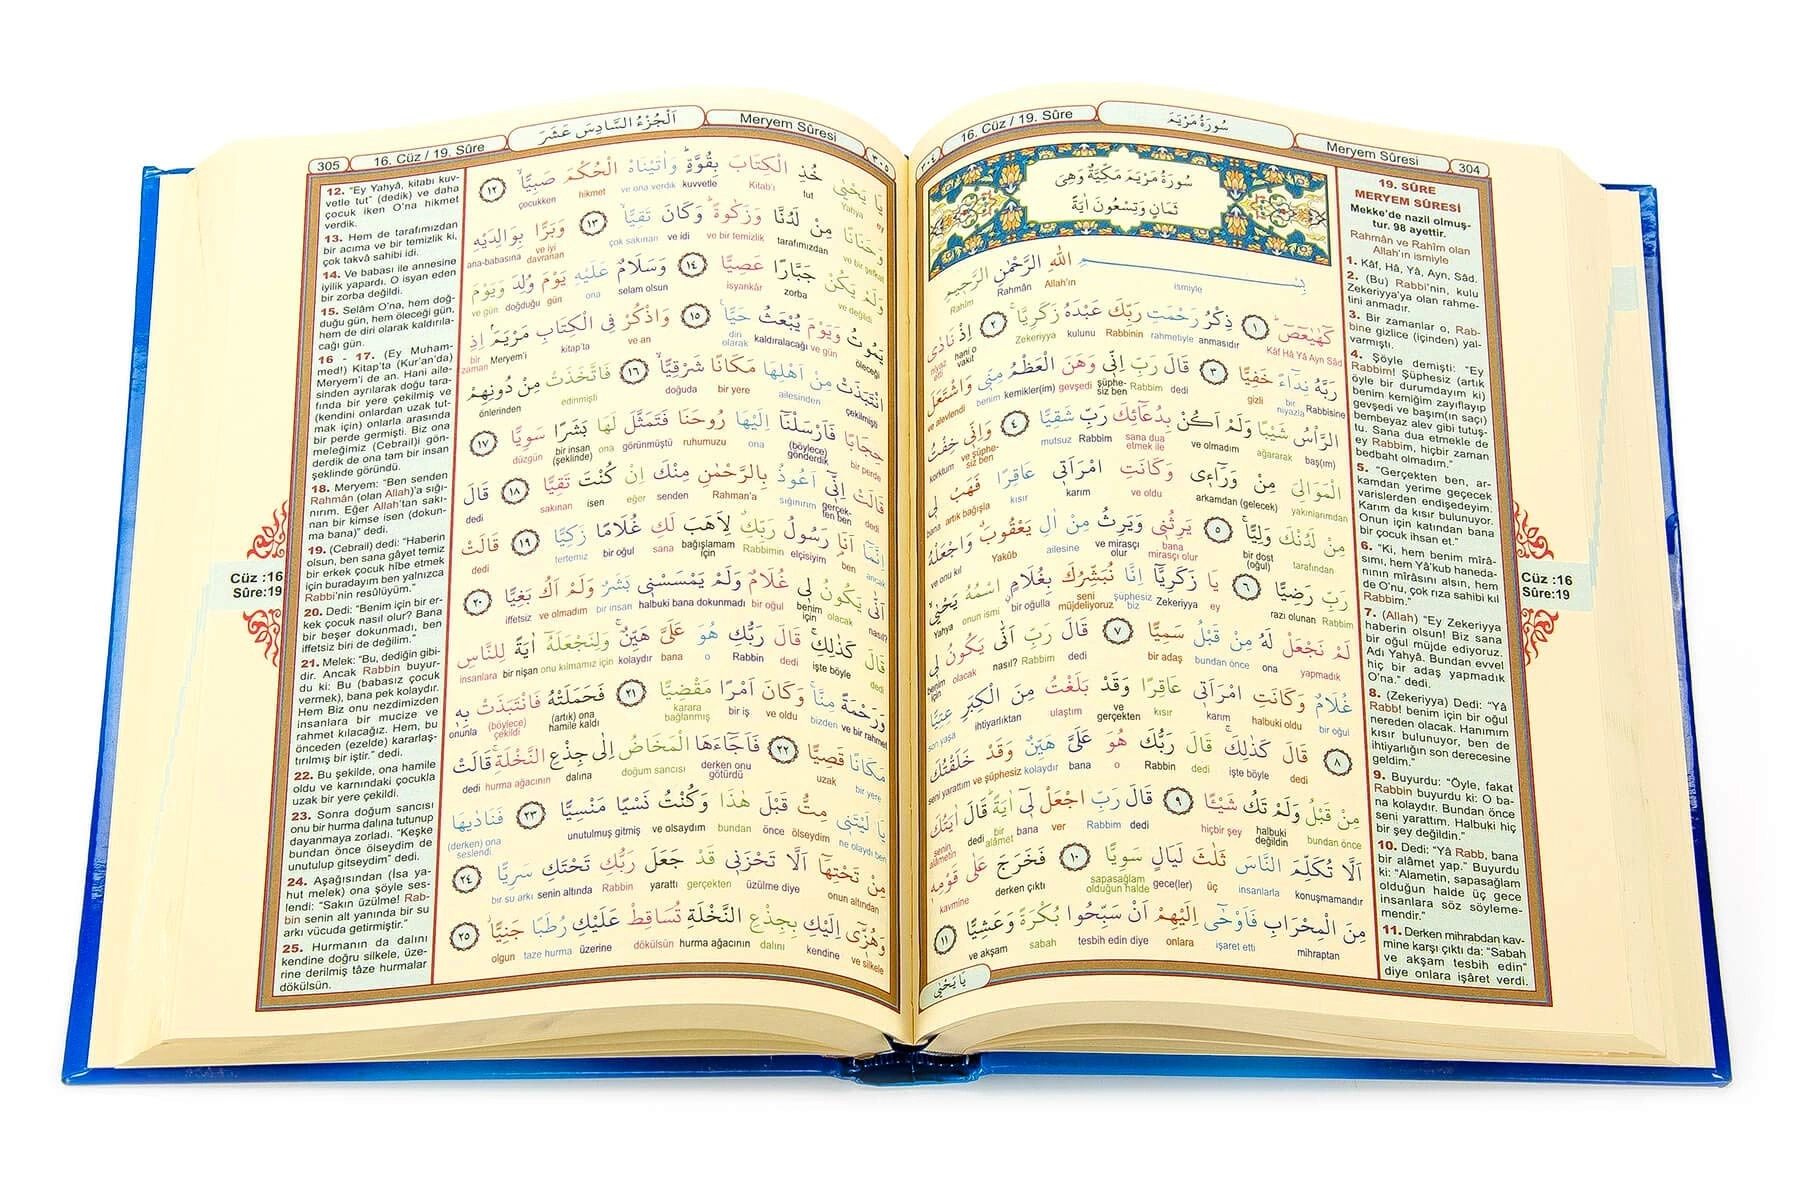 16. Cüz / 19. Sûre
سُورَةُ مَرْيَمَ
Meryem Sûresi
304
٣٠٤
سُورَةُ مَرْيَمَ مَكِّيَّةٌ وَهِيَ
ثَمَانٍ وَتِسْعُونَ اٰيَةً
بِسْمِ اللّٰهِ الرَّحْمٰنِ الرَّحِيمِ
ismiyle Allah'ın Rahmân Rahîm
كٓهٰيٰعٓصٓ ١ ذِكْرُ رَحْمَتِ رَبِّكَ عَبْدَهُ زَكَرِيَّا ٢ اِذْ نَادٰى
Kâf Hâ Yâ Ayn Sâd anmasıdır rahmetiyle Rabbinin kulunu Zekeriyya hani o vakit niyaz etti
رَبَّهُ نِدَٓاءً خَفِيًّا ٣ قَالَ رَبِّ اِنّ۪ي وَهَنَ الْعَظْمُ مِنّ۪ي وَاشْتَعَلَ
Rabbisine bir niyazla gizli dedi Rabbim şüphesiz ben gevşedi kemikler(im) benim ve alevlendi
الرَّأْسُ شَيْبًا وَلَمْ اَكُنْ بِدُعَٓائِكَ رَبِّ شَقِيًّا ٤ وَاِنّ۪ي خِفْتُ
baş(ım) ağararak ve olmadım sana dua etmek ile Rabbim mutsuz ve şüphesiz ben korktum
الْمَوَالِيَ مِنْ وَرَٓاء۪ي وَكَانَتِ امْرَاَت۪ي عَاقِرًا فَهَبْ ل۪ي
yakınlarımdan arkamdan (gelecek) ve oldu karım kısır artık bağışla bana
مِنْ لَدُنْكَ وَلِيًّا ٥ يَرِثُن۪ي وَيَرِثُ مِنْ اٰلِ يَعْقُوبَ وَاجْعَلْهُ
tarafından bir dost (oğul) bana mirasçı olur ve mirasçı olur ailesine Yakûb ve onu kıl
رَبِّ رَضِيًّا ٦ يَا زَكَرِيَّٓا اِنَّا نُبَشِّرُكَ بِغُلَامٍ اسْمُهُ يَحْيٰى
Rabbim razı olunan ey Zekeriyya şüphesiz biz seni müjdeliyoruz bir oğulla onun ismi Yahya
لَمْ نَجْعَلْ لَهُ مِنْ قَبْلُ سَمِيًّا ٧ قَالَ رَبِّ اَنّٰى يَكُونُ ل۪ي
yapmadık ona bundan önce bir adaş dedi Rabbim nasıl? olacak benim için
غُلَامٌ وَكَانَتِ امْرَاَت۪ي عَاقِرًا وَقَدْ بَلَغْتُ مِنَ الْكِبَرِ عِتِيًّا
bir oğul halbuki oldu karım kısır ve gerçekten ulaştım ihtiyarlıktan son yaşa
٨ قَالَ كَذٰلِكَ قَالَ رَبُّكَ هُوَ عَلَيَّ هَيِّنٌ وَقَدْ خَلَقْتُكَ
dedi işte böyle dedi Rabbin o bana kolaydır ve şüphesiz seni yarattım
مِنْ قَبْلُ وَلَمْ تَكُ شَيْـًٔا ٩ قَالَ رَبِّ اجْعَلْ ل۪ٓي اٰيَةً قَالَ اٰيَتُكَ
bundan önce halbuki değildin hiçbir şey dedi Rabbim ver bana bir alâmet dedi senin alâmetin
اَلَّا تُكَلِّمَ النَّاسَ ثَلٰثَ لَيَالٍ سَوِيًّا ١٠ فَخَرَجَ عَلٰى قَوْمِه۪
konuşmamandır insanlarla üç gece(ler) sapasağlam olduğun halde derken çıktı kavmine
مِنَ الْمِحْرَابِ فَاَوْحٰٓى اِلَيْهِمْ اَنْ سَبِّحُوا بُكْرَةً وَعَشِيًّا ١١
mihraptan işaret etti onlara tesbih edin diye sabah ve akşam
يَا يَحْيٰى
19. SÛRE
MERYEM SÛRESİ
Mekke'de nazil olmuş-
tur. 98 ayettir.
Rahmân ve Rahîm olan
Allah'ın ismiyle
1. Kâf, Hâ, Yâ, Ayn, Sâd.
2. (Bu) Rabbi'nin, kulu
Zekeriyya'ya olan rahme-
tini anmadır.
3. Bir zamanlar o, Rab-
bine gizlice (içinden) yal-
varmıştı.
4. Şöyle demişti: "Ey
Rabbim! Şüphesiz (artık
öyle bir durumdayım ki)
benim kemiğim zayıflayıp
gevşedi ve başım(ın saçı)
bembeyaz alev gibi tutuş-
tu. Sana dua etmekle de
ey Rabbim, hiçbir zaman
bedbaht olmadım."
5. "Gerçekten ben, ar-
kamdan yerime geçecek
varislerden endişedeyim.
Karım da kısır bulunuyor.
Onun için katından bana
bir çocuk ihsan et."
6. "Ki, hem benim mirâ-
sımı, hem Yâ'kub haneda-
nının mirâsını alsın, hem
de O'nu, çok rıza sahibi kıl
Rabbim."
7. (Allah) "Ey Zekeriyya
haberin olsun! Biz sana
bir oğul müjde ediyoruz.
Adı Yahyâ. Bundan evvel
hiç bir adaş yapmadık
O'na." dedi.
8. (Zekeriyya) Dedi: "Yâ
Rabb! benim için bir oğul
nereden olacak. Hanımım
kısır bulunuyor, ben de
ihtiyarlığın son derecesine
geldim."
9. Buyurdu: "Öyle, fakat
Rabbin buyurdu ki: O ba-
na kolaydır. Bundan önce
seni yarattım. Halbuki hiç
bir şey değildin."
10. Dedi: "Yâ Rabb, bana
bir alâmet yap." Buyurdu
ki: "Alametin, sapasağlam
olduğun halde üç gece
insanlara söz söyleme-
mendir."
11. Derken mihrabdan kav-
mine karşı çıktı da: "Sabah
ve akşam tesbih edin"
diye onlara işâret verdi.
Cüz :16
Sûre:19
305
16. Cüz / 19. Sûre
اَلْجُزْءُ السَّادِسَ عَشَرَ
Meryem Sûresi
٣٠٥
يَا يَحْيٰى خُذِ الْكِتَابَ بِقُوَّةٍ وَاٰتَيْنَاهُ الْحُكْمَ صَبِيًّا ١٢
ey Yahya tut Kitab'ı kuvvetle ve ona verdik hikmet çocukken
وَحَنَانًا مِنْ لَدُنَّا وَزَكٰوةً وَكَانَ تَقِيًّا ١٣ وَبَرًّا بِوَالِدَيْهِ
ve bir şefkat tarafımızdan ve bir temizlik ve idi çok sakınan ve iyi davranan ana-babasına
وَلَمْ يَكُنْ جَبَّارًا عَصِيًّا ١٤ وَسَلَامٌ عَلَيْهِ يَوْمَ وُلِدَ وَيَوْمَ
ve değildi zorba isyankâr selam olsun ona doğduğu gün ve gün
يَمُوتُ وَيَوْمَ يُبْعَثُ حَيًّا ١٥ وَاذْكُرْ فِي الْكِتَابِ مَرْيَمَ اِذِ
öleceği ve gün kaldıralacağı diri olarak ve an kitap'ta Meryem'i bir zaman
انْتَبَذَتْ مِنْ اَهْلِهَا مَكَانًا شَرْقِيًّا ١٦ فَاتَّخَذَتْ مِنْ دُونِهِمْ
çekilmişti ailesinden bir yere doğuda edinmişti önlerinden
حِجَابًا فَاَرْسَلْنَٓا اِلَيْهَا رُوحَنَا فَتَمَثَّلَ لَهَا بَشَرًا سَوِيًّا ١٧
bir perde (böylece) gönderdik ona ruhumuzu görünmüştü ona bir insan (şeklinde) düzgün
قَالَتْ اِنّ۪ٓي اَعُوذُ بِالرَّحْمٰنِ مِنْكَ اِنْ كُنْتَ تَقِيًّا ١٨ قَالَ
dedi gerçekten ben sığınırım Rahman'a senden eğer isen sakınan dedi
اِنَّمَٓا اَنَا رَسُولُ رَبِّكِ لِاَهَبَ لَكِ غُلَامًا زَكِيًّا ١٩ قَالَتْ
ancak ben elçisiyim Rabbimin bağışlamam için sana bir oğul tertemiz dedi
اَنّٰى يَكُونُ ل۪ي غُلَامٌ وَلَمْ يَمْسَسْن۪ي بَشَرٌ وَلَمْ اَكُ بَغِيًّا ٢٠
nasıl? olacak benim için bir oğul halbuki bana dokunmadı bir insan ve olmadım iffetsiz
قَالَ كَذٰلِكِ قَالَ رَبُّكِ هُوَ عَلَيَّ هَيِّنٌ وَلِنَجْعَلَهُٓ اٰيَةً لِلنَّاسِ
dedi işte böyle dedi Rabbin o bana kolaydır onu kılmamız için bir nişan insanlara
وَرَحْمَةً مِنَّا وَكَانَ اَمْرًا مَقْضِيًّا ٢١ فَحَمَلَتْهُ فَانْتَبَذَتْ بِه۪
ve bir rahmet bizden ve oldu bir iş karara bağlanmış (artık) ona hamile kaldı (böylece) çekildi onunla
مَكَانًا قَصِيًّا ٢٢ فَاَجَٓاءَهَا الْمَخَاضُ اِلٰى جِذْعِ النَّخْلَةِ قَالَتْ
bir yere uzak derken onu götürdü doğum sancısı dalına hurma ağacının dedi
يَا لَيْتَن۪ي مِتُّ قَبْلَ هٰذَا وَكُنْتُ نَسْيًا مَنْسِيًّا ٢٣ فَنَادٰيهَا
ne olaydı ben ölseydim önce bundan ve olsaydım unutulmuş gitmiş (derken) ona seslendi
مِنْ تَحْتِهَٓا اَلَّا تَحْزَن۪ي قَدْ جَعَلَ رَبُّكِ تَحْتَكِ سَرِيًّا ٢٤
onun altından üzülme diye gerçekten yarattı Rabbin senin altında bir su arkı
وَهُزّ۪ٓي اِلَيْكِ بِجِذْعِ النَّخْلَةِ تُسَاقِطْ عَلَيْكِ رُطَبًا جَنِيًّا ٢٥
ve silkele kendine dalını hurma ağacının dökülsün üzerine taze hurma olgun
12. "Ey Yahyâ, kitabı kuv-
vetle tut" (dedik) ve daha
çocuk iken O'na hikmet
verdik.
13. Hem de tarafımızdan
bir acıma ve bir temizlik ki,
çok takvâ sahibi idi.
14. Ve babası ile annesine
iyilik yapardı. O isyan eden
bir zorba değildi.
15. Selâm O'na, hem doğ-
duğu gün, hem öleceği gün,
hem de diri olarak kaldırıla-
cağı gün.
16 - 17. (Ey Muham-
med!) Kitap'ta (Kur'an'da)
Meryem'i de an. Hani aile-
sinden ayrılarak doğu tara-
fında bir yere çekilmiş ve
(kendini onlardan uzak tut-
mak için) onlarla arasında
bir perde germişti. Biz ona
meleğimiz (Cebrail)i gön-
derdik de ona tam bir insan
şeklinde göründü.
18. Meryem: "Ben senden
Rahmân (olan Allah)'a sığı-
nırım. Eğer Allah'tan sakı-
nan bir kimse isen (dokun-
ma bana)" dedi.
19. (Cebrail) dedi: "Haberin
olsun, ben sana gâyet temiz
bir erkek çocuk hîbe etmek
için buradayım ben yalnızca
Rabbi'nin resûlüyüm."
20. Dedi: "Benim için bir er-
kek çocuk nasıl olur? Bana
bir beşer dokunmadı, ben
iffetsiz biri de değilim."
21. Melek: "Bu, dediğin gibi-
dir. Ancak Rabbin buyur-
du ki: Bu (babasız çocuk
vermek), bana pek kolaydır.
Hem Biz onu nezdimizden
insanlara bir mucize ve
rahmet kılacağız. Hem, bu
önceden (ezelde) kararlaş-
tırılmış bir iştir." dedi.
22. Bu şekilde, ona hamile
oldu ve karnındaki çocukla
uzak bir yere çekildi.
23. Sonra doğum sancısı
onu bir hurma dalına tutunup
dayanmaya zorladı. "Keşke
bundan önce ölseydim de
unutulup gitseydim" dedi.
24. Aşağısından (İsa ya-
hut melek) ona şöyle ses-
lendi: "Sakın üzülme! Rab-
bin senin alt yanında bir su
arkı vücuda getirmiştir."
25. Hurmanın da dalını
kendine doğru silkele, üze-
rine derilmiş tâze hurmalar
dökülsün.
Cüz :16
Sûre:19